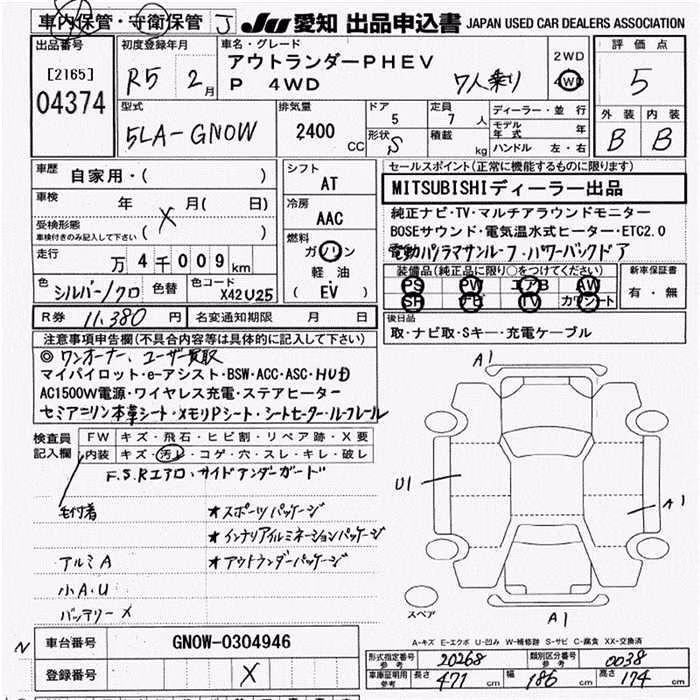 車内保管・守衛保管 J JU 愛知 出品申込書 JAPAN USED CAR DEALERS ASSOCIATION
出品番号 初度登録年月 車名・グレード 評価点
[2165] R5 2月 アウトランダーPHEV 2WD
04374 P 4WD 7人乗り 4WD 5
型式 排気量 ドア 定員 ディーラー・並行 外装 内装
5LA-GN0W 2400 CC 5 7人 モデル年式 年 B B
形状 S 積載 kg ハンドル 左・右
車歴 自家用・( ) シフト AT セールスポイント(正常に機能するものに限ります)
車検 年 月( 日) 冷房 AAC MITSUBISHIディーラー出品
受検形態 車検付きのみ記入して下さい ( X ) 燃料 純正ナビ・TV・マルチアラウンドモニター
BOSEサウンド・電気温水式ヒーター・ETC2.0
走行 万4千009km ガソリン 電動パノラマサンルーフ・パワーバックドア
軽油 装備品(純正品に限り○をつけてください) 新車保証書
色 シルバー/クロ 色替 色コード X42 U25 ( EV ) PS PW エアB AW 有・無
SR ナビ TV カワシート
R券 11,380円 名変通知期限 月 日 後日品
注意事項申告欄(不具合内容等は具体的に記入して下さい) 取・ナビ取・Sキー・充電ケーブル
◎ワンオーナー、ユーザー買取
マイパイロット・e-アシスト・BSW・ACC・ASC・HUD A1
AC1500W電源・ワイヤレス充電・ステアヒーター
セミアニリン本革シート・メモリPシート・シートヒーター・ルーフレール
検査員記入欄 FW キズ・飛石・ヒビ割・リペア跡・X要
内装 キズ・汚レ・コゲ・穴・スレ・キレ・破レ
F.S.Rエアロ・サイドアンダーガード
U1 A1
毛付着 ★スポーツパッケージ
★インテリアイルミネーションパッケージ
アルミA ★アウトランダーパッケージ
小A.U
バッテリーX スペア A1
A-キズ E-エクボ U-凹み W-補修跡 S-サビ C-腐食 XX-交換済
N 車台番号 GN0W-0304946
型式指定番号 参考 20268 類別区分番号 参考 0038
登録番号 X 車庫証明用 参考 長さ 471 cm 幅 186 cm 高さ 174 cm